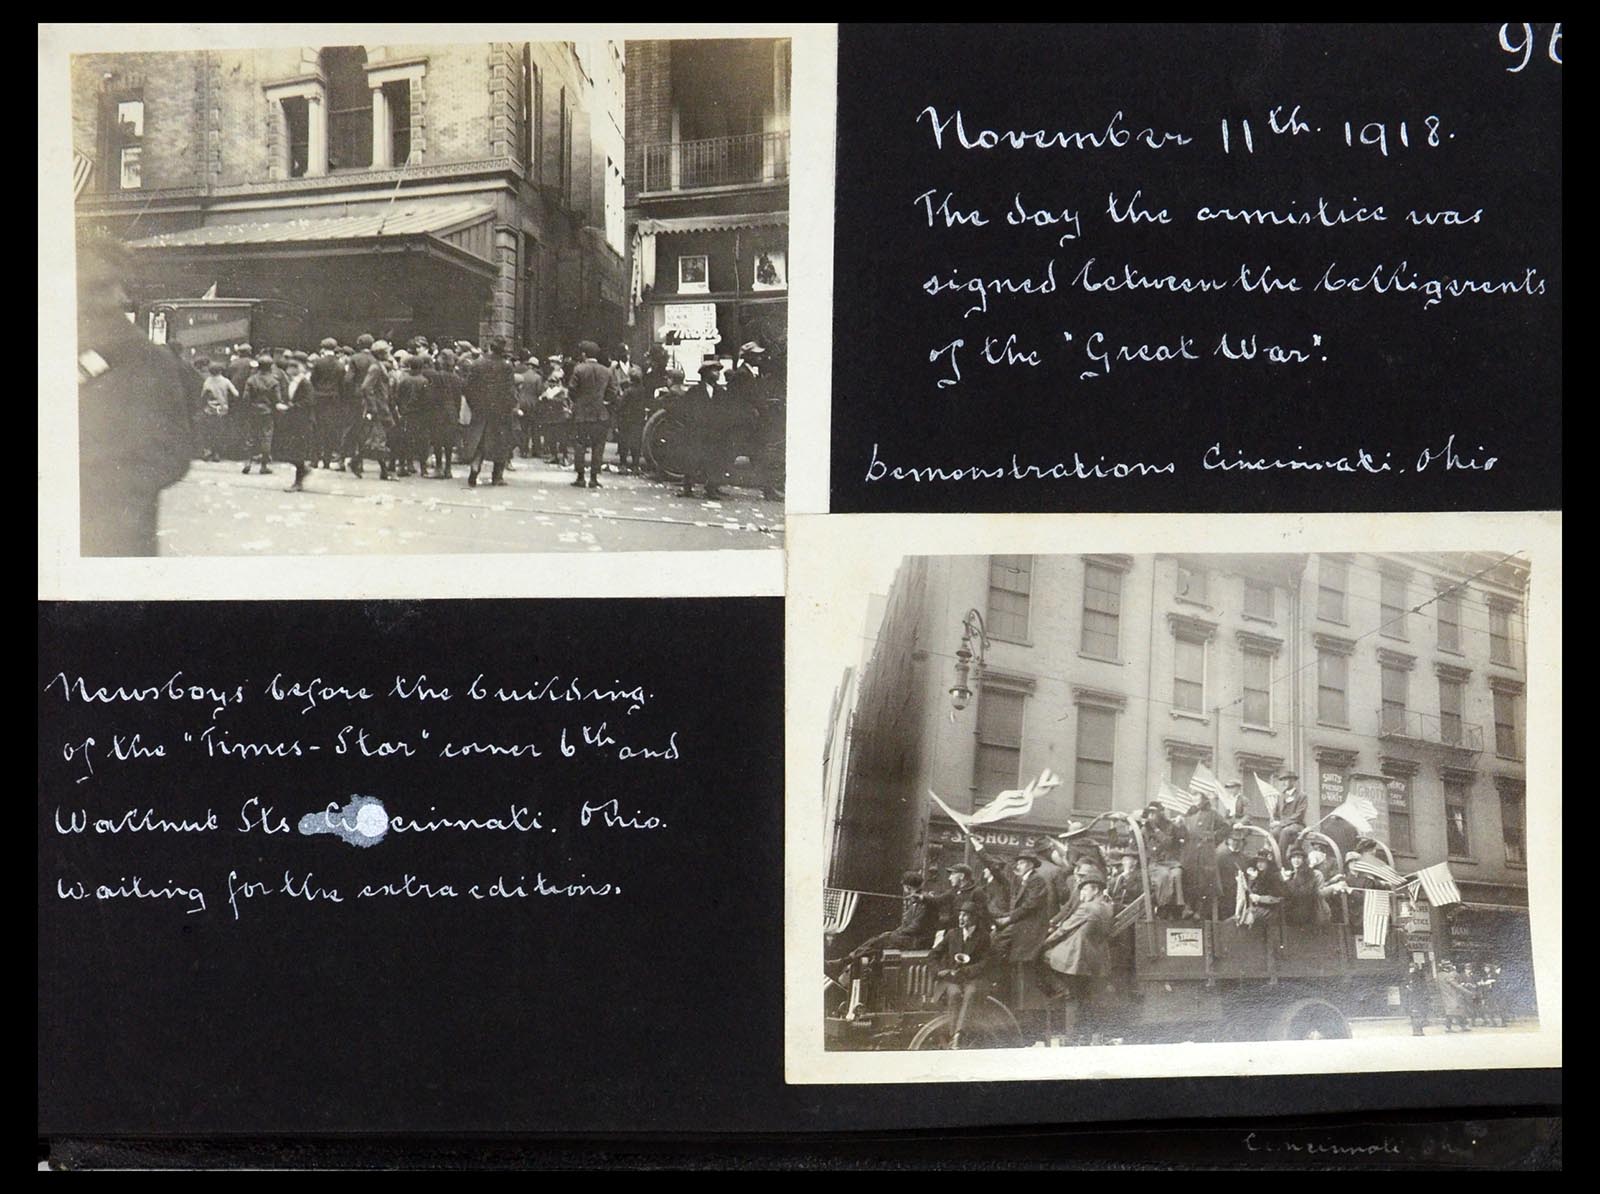 November 11th. 1918.
The day the armistice was
signed between the belligerents
of the "Great War".
Demonstrations Cincinnati. Ohio
Newsboys before the building
of the "Times-Star" corner 6th and
Wallnut Sts. Cincinnati. Ohio.
Waiting for the extra editions.
SHOE
SUITS
PRESSED
Cincinnati.